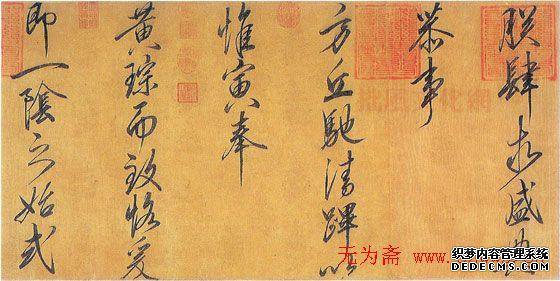 朕肆求盛典
恭事
方丘馳清蹕以
惟寅奉
黃琮而致恪爰
即一陰之始式
无为斋 www.
织梦内容管理系统
DEDECMS.COM